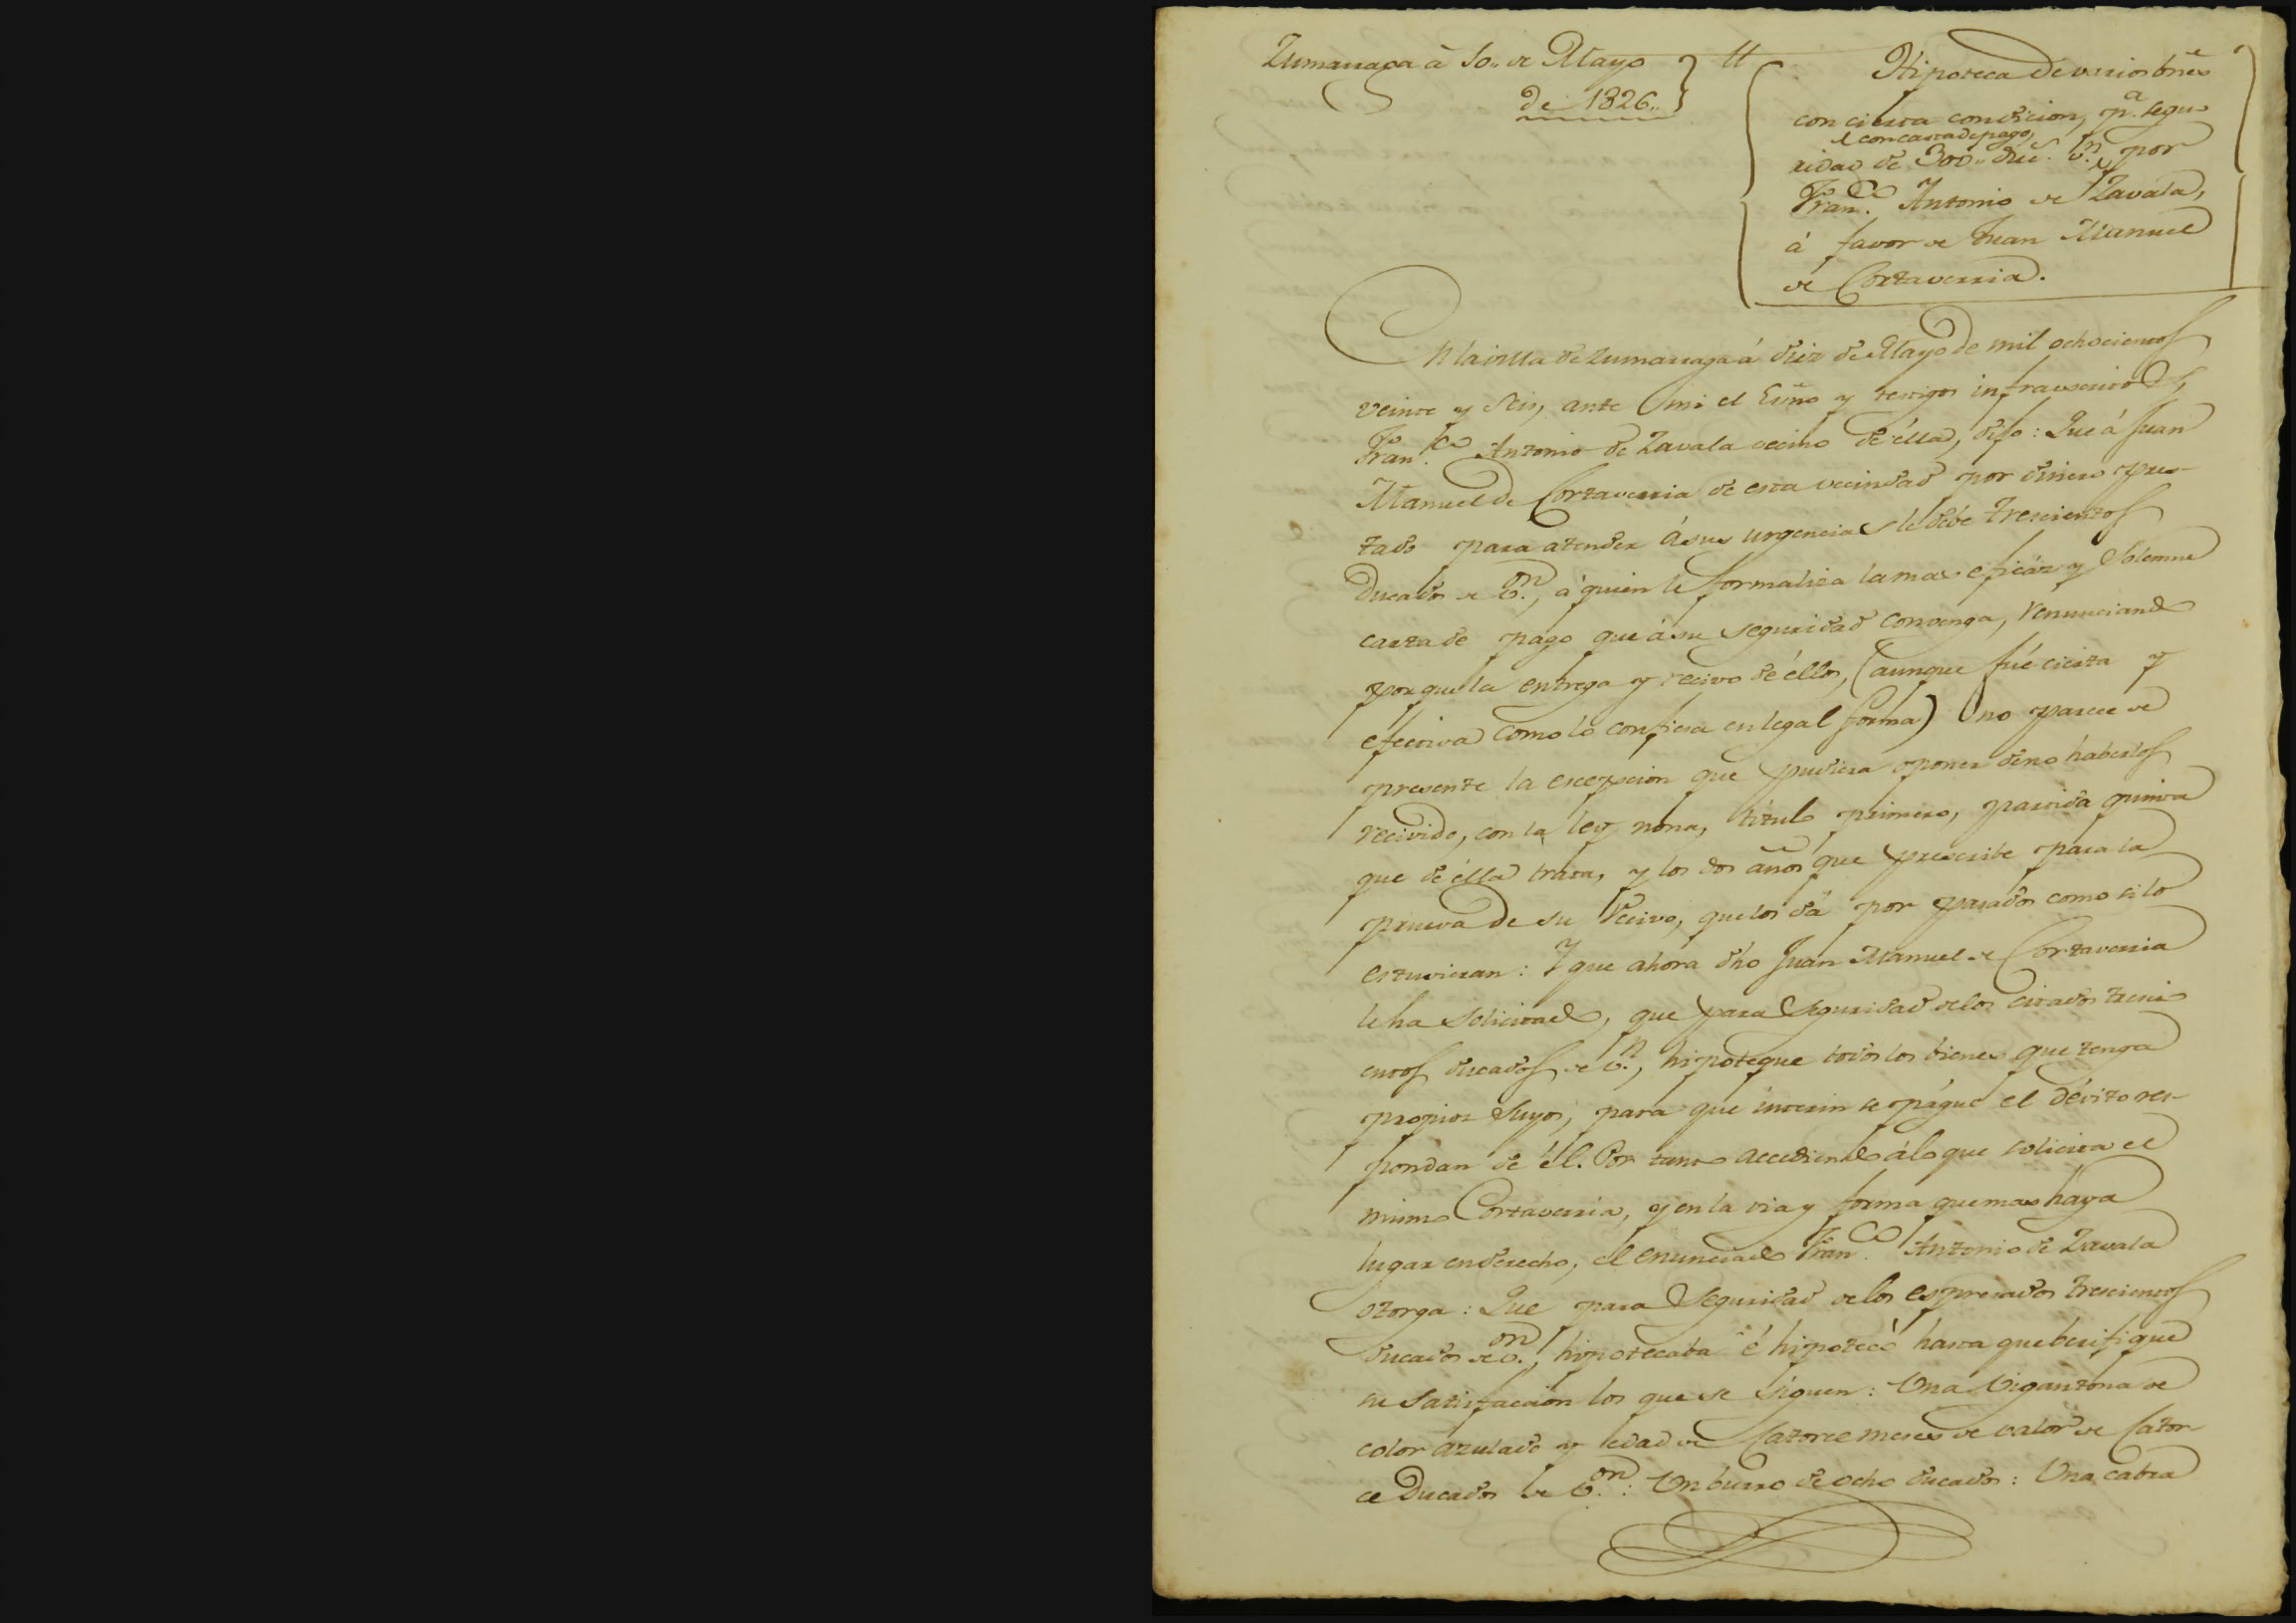 Zumarraga à 10,, de Mayo
de 1826,,
Hipoteca de varios bñes
con cierta condicion, p.ª segu-
é con carta de pago,
ridad de 300,, duc.s v.n, por
Fran.co Antonio de Zavala,
á favor de Juan Manuel
de Cortaverria.
En la villa de Zumarraga á diez de Mayo de mil ochocientos
veinte y seis, ante mi el Esño y testigos infraescritos,
Fran.co Antonio de Zavala vecino de élla, dijo: Que á Juan
Manuel de Cortaverria de esta vecindad por dinero pres-
tado para atender á sus urgencias le debe trescientos
Ducados de v.on, á quien le formaliza la mas eficáz y solemne
carta de pago que á su seguridad convenga, renunciando
porque la entrega y recivo de éllos, (aunque fué cierta y
efectiva como lo confiesa en legal forma) no parece de
presente la escepcion que pudiera oponer de no haberlos
recivido, con la ley nona, titulo primero, partida quinta
que de élla trata, y los dos años que prescribe para la
prueva de su recivo, que los dá por pasados como si lo
estuvieran: Y que ahora dho Juan Manuel de Cortaverria
le ha solicitado, que para seguridad de los citados tresci-
entos ducados de v.n, hipoteque todos los bienes que tenga
propios suyos, para que interin se págue el dévito res-
pondan de él. Por tanto accediendo á lo que solicita el
mismo Cortaverria, y en la via y forma que mas haya
lugar en derecho, el enunciado Fran.co Antonio de Zavala
otorga: Que para seguridad de los espresados trescientos
ducados de v.on, hipotecaba é hipotecó hasta que berifique
su satisfaccion los que se siguen: Una Vigantona de
color azulado y edad de catorce meses de valor de cator-
ce Ducados de v.on: Un burro de ocho ducados: Una cabra